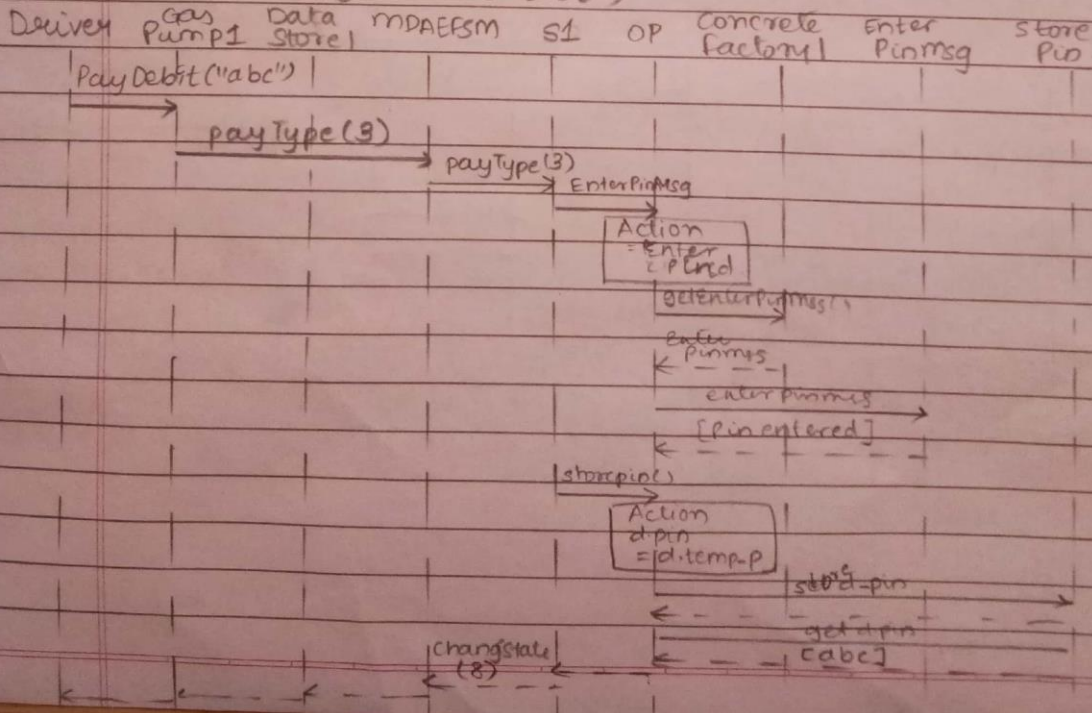 Driver Gas Pump1 Data Store1 MDAEFSM S1 OP Concrete factory1 Enter Pinmsg Store Pin
PayDebit("abc")
payType(3)
payType(3)
EnterPinMsg
Action
= Enter
getEnterPinMsg()
enter
pinmsg
enterpinmsg
[Pin entered]
storepin()
Action
d.pin
= d.temp_p
store d-pin
get d.pin
[abc]
Changstate
(8)